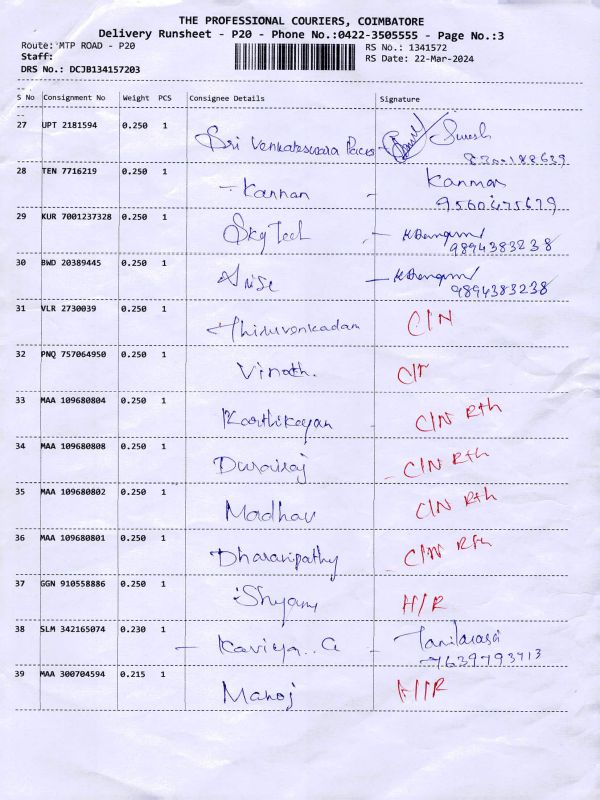 THE PROFESSIONAL COURIERS, COIMBATORE
Delivery Runsheet - P20 - Phone No.:0422-3505555 - Page No.:3
Route: MTP ROAD - P20 RS No.: 1341572
Staff: RS Date: 22-Mar-2024
DRS No.: DCJB134157203
S No Consignment No Weight PCS Consignee Details Signature
27 UPT 2181594 0.250 1 Sri Venkateswara Suresh
28 TEN 7716219 0.250 1 Kannan - Kannan
29 KUR 7001237328 0.250 1 Sky Tech -
9894383238
30 BWD 20389445 0.250 1 Arise -
9894383238
31 VLR 2730039 0.250 1 Thiruvenkadam C/N
32 PNQ 757064950 0.250 1 Vinoth.
33 MAA 109680804 0.250 1 Karthikeyan C/N Rth
34 MAA 109680808 0.250 1 Durairaj C/N Rth
35 MAA 109680802 0.250 1 Madhav C/N Rth
36 MAA 109680801 0.250 1 Dharanipathy C/N Rth
37 GGN 910558886 0.250 1 Shyam H/R
38 SLM 342165074 0.230 1 - Kaviya.. G - Tamilarasi
7639793713
39 MAA 300704594 0.215 1 Manoj H/R